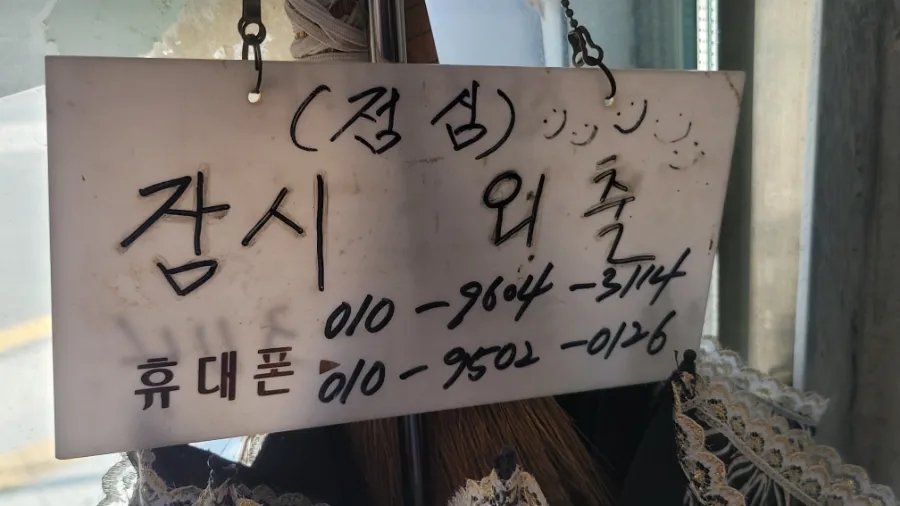 (점심)
잠시 외출
010-9604-3114
휴대폰 010-9502-0126